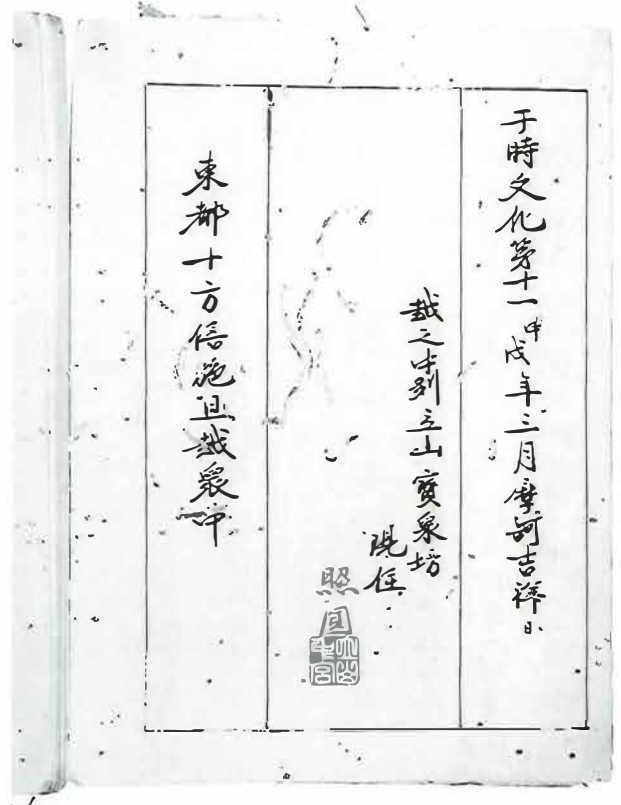 于時文化第十一甲戌年三月摩訶吉祥日
越之中列立山寶泉坊
現住
照圓
東都十方信施旦越衆中